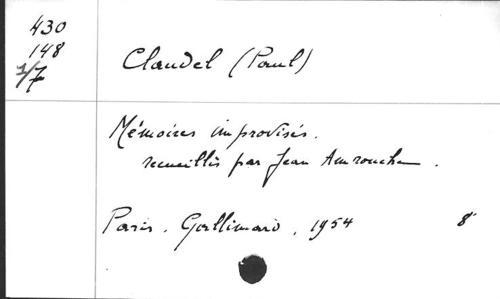 430
148
1/7
Claudel (Paul)
Mémoires improvisés.
recueillis par Jean Amrouche.
Paris. Gallimard, 1954 8°